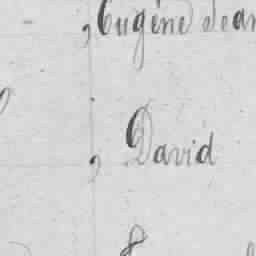 , Eugène Jean
, David